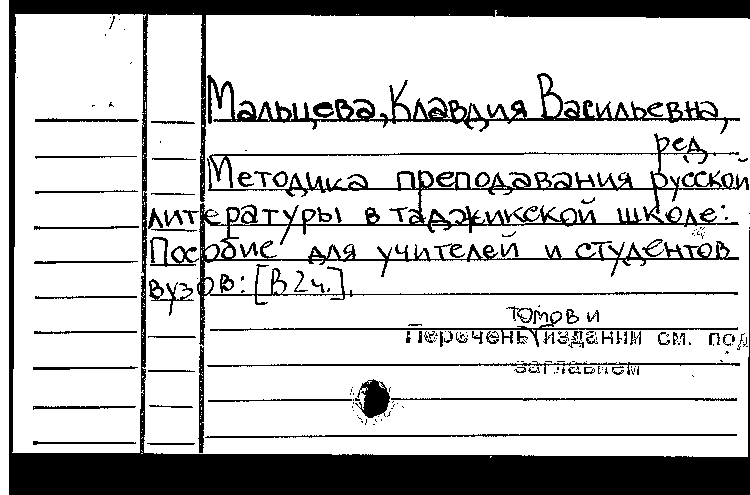 Мальцева, Клавдия Васильевна,
ред.
Методика преподавания русской
литературы в таджикской школе:
Пособие для учителей и студентов
вузов: [В 2 ч.].
томов и
Перечень изданий см. под
заглавием